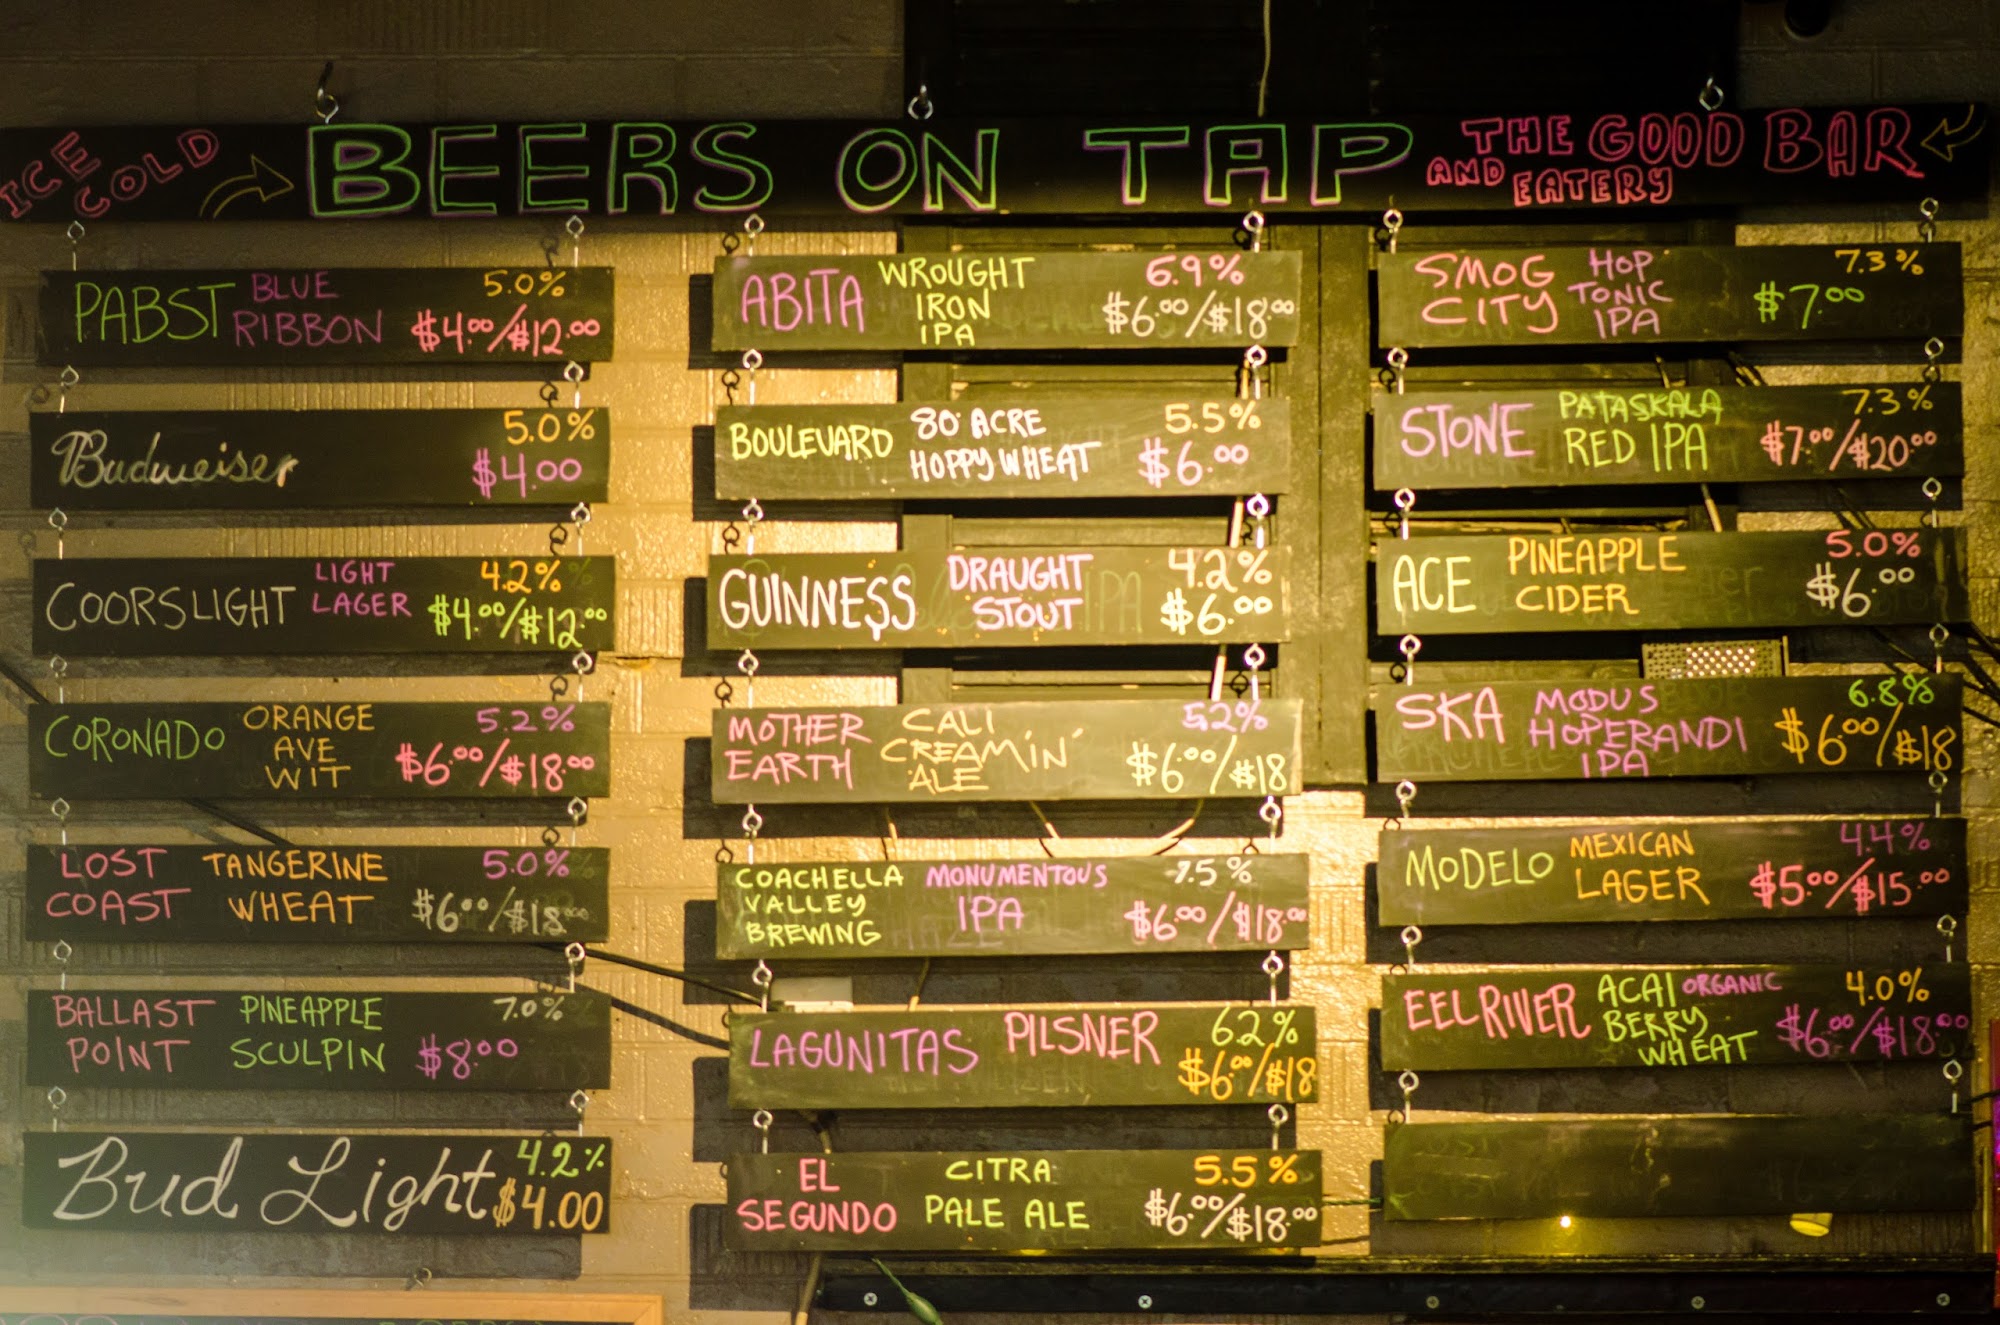 ICE COLD
BEERS ON TAP
THE GOOD BAR
AND EATERY
PABST BLUE RIBBON 5.0%
$4.00/$12.00
Budweiser 5.0%
$4.00
COORSLIGHT LIGHT LAGER 4.2%
$4.00/$12.00
CORONADO ORANGE AVE WIT 5.2%
$6.00/$18.00
LOST COAST TANGERINE WHEAT 5.0%
$6.00/$18.00
BALLAST POINT PINEAPPLE SCULPIN 7.0%
$8.00
Bud Light 4.2%
$4.00
ABITA WROUGHT IRON IPA 6.9%
$6.00/$18.00
BOULEVARD 80 ACRE HOPPY WHEAT 5.5%
$6.00
GUINNESS DRAUGHT STOUT 4.2%
$6.00
MOTHER EARTH CALI CREAMIN' ALE 5.2%
$6.00/$18
COACHELLA VALLEY BREWING MONUMENTOUS IPA 7.5%
$6.00/$18.00
LAGUNITAS PILSNER 6.2%
$6.00/$18
EL SEGUNDO CITRA PALE ALE 5.5%
$6.00/$18.00
SMOG CITY HOP TONIC IPA 7.3%
$7.00
STONE PATASKALA RED IPA 7.3%
$7.00/$20.00
ACE PINEAPPLE CIDER 5.0%
$6.00
SKA MODUS HOPERANDI IPA 6.8%
$6.00/$18
MODELO MEXICAN LAGER 4.4%
$5.00/$15.00
EEL RIVER ACAI BERRY WHEAT ORGANIC 4.0%
$6.00/$18.00